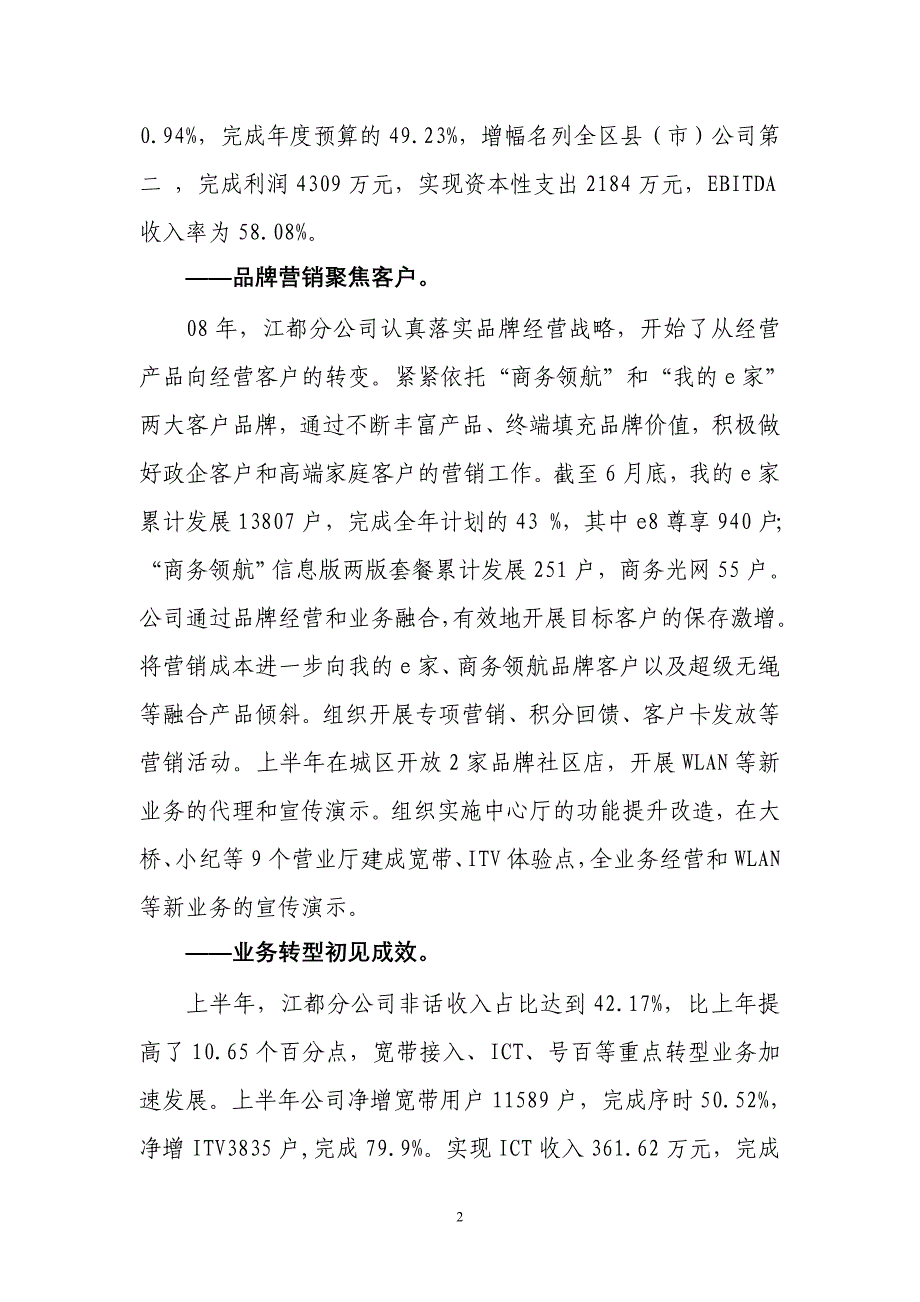 0.94%，完成年度预算的 49.23%，增幅名列全区县（市）公司第
二 ，完成利润 4309 万元，实现资本性支出 2184 万元，EBITDA
收入率为 58.08%。
——品牌营销聚焦客户。
08 年，江都分公司认真落实品牌经营战略，开始了从经营
产品向经营客户的转变。紧紧依托“商务领航”和“我的 e 家”
两大客户品牌，通过不断丰富产品、终端填充品牌价值，积极做
好政企客户和高端家庭客户的营销工作。截至 6 月底，我的 e 家
累计发展 13807 户，完成全年计划的 43 %，其中 e8 尊享 940 户；
“商务领航”信息版两版套餐累计发展 251 户，商务光网 55 户。
公司通过品牌经营和业务融合，有效地开展目标客户的保存激增。
将营销成本进一步向我的 e 家、商务领航品牌客户以及超级无绳
等融合产品倾斜。组织开展专项营销、积分回馈、客户卡发放等
营销活动。上半年在城区开放 2 家品牌社区店，开展 WLAN 等新
业务的代理和宣传演示。组织实施中心厅的功能提升改造，在大
桥、小纪等 9 个营业厅建成宽带、ITV 体验点，全业务经营和 WLAN
等新业务的宣传演示。
——业务转型初见成效。
上半年，江都分公司非话收入占比达到 42.17%，比上年提
高了 10.65 个百分点，宽带接入、ICT、号百等重点转型业务加
速发展。上半年公司净增宽带用户 11589 户，完成序时 50.52%，
净增 ITV3835 户,完成 79.9%。实现 ICT 收入 361.62 万元，完成
2